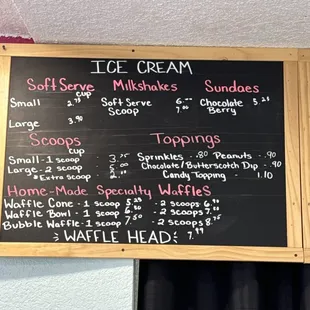 ICE CREAM
Soft Serve Milkshakes Sundaes
cup
Small 2.75 Soft Serve 6.00 Chocolate 5.25
Scoop 7.00 Berry
Large 3.90
Scoops Toppings
cup
Small-1 scoop 3.75 Sprinkles .80 Peanuts .90
Large-2 scoop Chocolate/Butterscotch Dip .90
Extra scoop Candy Topping 1.10
Home-Made Specialty Waffles
Waffle Cone-1 scoop 5.25 - 2 scoops 6.90
Waffle Bowl-1 scoop - 2 scoops 7.00
Bubble Waffle-1 scoop 7.50 - 2 scoops 8.75
WAFFLE HEAD: 7.99